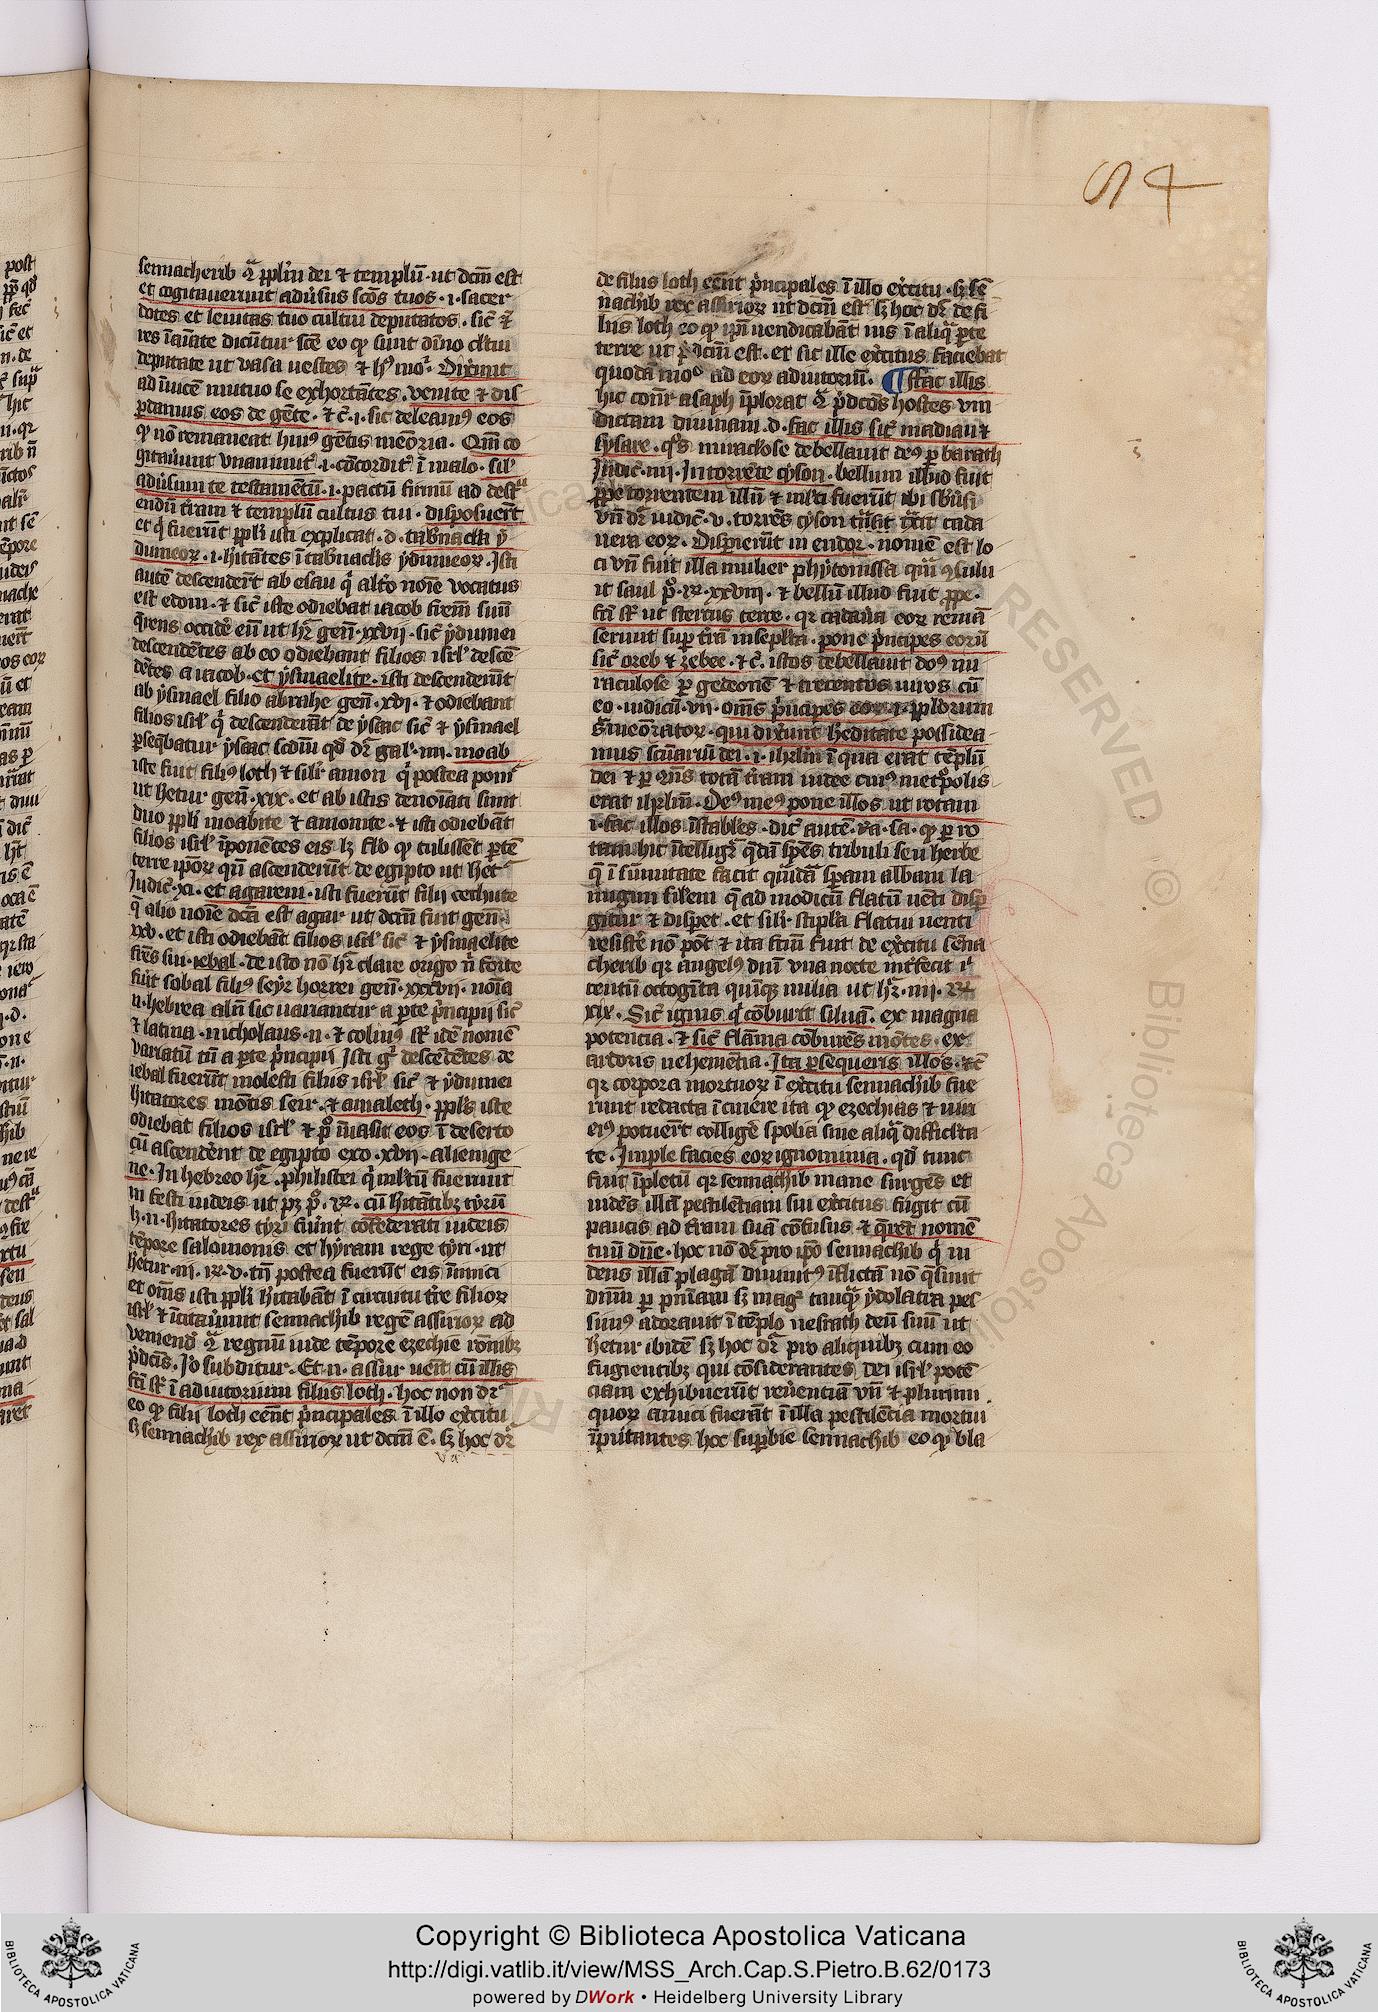 84
sennacherib ꝯᷓ pplm dei ⁊ templū · ut dcm̄ est
et cogitaverunt adūsus scōs tuos · i · sacer
dotes et levitas tuo cultui deputatos · sic̄ ⁊
res īaīate dicūtur scē eo qꝫ sunt dīuīo cultui
deputate ut vasa uestes ⁊ hꝰ moͥ. Dixerūt
ad īuicē mutuo se exhortātes · venite ⁊ dis
ꝑdamus eos de gēte · ⁊ c̄ · i · sic deleamꝰ eos
qꝫ nō remaneat huiꝰ gētis meōria · Qm̄ co
gitauīunt vnanimit̄ · i · cōcordit̄ ī malo · sil̄
adūsum te testamētū · i · pactū firmū ad destᷓ
endū trām ⁊ templū cultus tui · disposuer̄t
et qͥ fuer̄t ppli isti explicat · d · tab̄nacla y
dumeoꝝ · i · hītātes ī tab̄naclis ydumeoꝝ · Isti
autē descender̄t ab esau qͥ alͦ noīe vocatus
est edom · ⁊ sic̄ iste odiebat iacob frēm suū
q̄rens occidē eū ut hr̄ gen̄ · xxvii · sic̄ ydumei
descendētes ab eo odiebant filios isrl̄ descē
dētes a iacob · et ysmaelite · isti descenderūt
ab ysmael filio abrahe gen̄ · xvi · ⁊ odiebant
filios isrl̄ qͥ descender̄t de ysaac sic̄ ⁊ ysmael
ꝑseq̄batur ysaac scdm̄ qd̄ dr̄ gal̄ · iiii · moab
iste fuit filiꝰ loth ⁊ silr̄ amon qͥ postea ponit̄
ut hetur gen̄ · xix · et ab istis denoīati sunt
duo ppli moabite ⁊ amonite · ⁊ isti odiebāt
filios isrl̄ īponētes eis lꝫ flō qꝫ tulissēt ꝑtē
terre ipoꝝ qn̄ ascenderūt de egipto ut het̄
Iudic̄ · xi · et agareni · isti fuerūt filij cethure
q̄ alio noīe dcā est agar ut dcm̄ fuit gen̄ ·
xxv · et isti odiebāt filios isrl̄ sic̄ ⁊ ysmaelite
frēs sui · iebal · de isto nō hr̄ clare origo nͥ forte
fuit sobal filiꝰ seyr horrei gen̄ · xxxvii · noīa
n̄ · hebrea aln̄ sic variantur a ꝑte pͥncipij sic̄
⁊ latina · nicholaus · n̄ · ⁊ colinꝰ sт̄ idē nomē
variatū tn̄ a ꝑte pͥncipij Isti gͦ descēdētes de
iebal fuer̄t molesti filiis isrl̄ sic̄ ⁊ ydumei
hītatores mōtis seir · ⁊ amalech · pplꝰ iste
odiebat filios isrl̄ ⁊ pͦ īuasit eos ī deserto
cū ascendēnt de egipto exo · xvii · alienige
ne · In hebreo hr̄ · philistei qͥ mltū fuerunt
īfesti iudeis ut pꝫ pͦ · Rꝝ · cū hītātibꝫ tyrū
h̄ · n̄ · hītatores tyri fūnt cōfederati iudeis
tēpore salomonis et hyram rege tyri · ut
hetur · iii · Rꝝ · v · tn̄ postea fuer̄t eis īimici
et om̄s isti ppli hītabāt ī circuitu trē filioꝝ
isrl̄ ⁊ īcitauīunt sennachib regē assirioꝝ ad
veniendͦ ꝯᷓ regnū iude tēpore ezechie cū oīnibꝫ
pͥdcīs · Iͦo subditur · Et · n̄ · assur uenit cū illis
fcī sт̄ ī adiutorium filiis loth · hoc non dr̄
eo qꝫ filij loth eēnt pͥncipales ī illo ex̄citu
sꝫ sennachib rex assirioꝝ ut dcm̄ ē · sꝫ hoc dr̄
va
de filiis loth eēnt pͥncipales ī illo ex̄citu · sꝫ sē
nachib rex assirioꝝ ut dcm̄ est · sꝫ hoc dr̄ de fi
liis loth eo qꝫ ipī uendicabāt ius ī aliqͣ ꝑte
terre ut pͥdcm̄ est · et sic ille ex̄citus faciebat
quodā moͦ ad eoꝝ adiutoriū · ¶ Fac illis
hic conr̄ asaph īplorat ꝯᷓ pͥdcōs hostes vin
dictam diuinam · d · fac illis sic̄ madian ⁊
sysare · qͦs miraclōse debellauit deꝰ ꝑ barach
Iudic̄ · iiii · In torrēte cyson · bellum illud fuit
ꝓpe torrentem illū ⁊ mlti fuerūt ibi sbūsi
vn̄ dr̄ iudic̄ · v · torrēs cyson tͣxit cada
uera eoꝝ · Disperierūt in endor · nomē est lo
ci vn̄ fuit illa mulier phytonissa quā ꝯsulu
it saul pͦ · Rꝝ · xxviii · ⁊ bellū illud fuit ꝓpe ·
fcī sт̄ ut stercus terre · qr cadaūa eoꝝ remā
serunt suꝑ trā insepl̄ta · pone pͥncipes eorū
sic̄ oreb ⁊ zebee · ⁊ c̄ · istos debellauit doꝰ mi
raculose ꝑ gedeonē ⁊ trecentos uiros cū
eo · iudicū · vii · om̄s pͥncipes eoꝝ · i · pplorum
p̄meōratoꝝ · qui dixer̄t hereditate possidea
mus scūariū dei · i · ihrlm̄ ī qua erat tēplū
dei ⁊ ꝑ ꝯn̄s totā trām iudee cuiꝰ metͦpolis
erat ihrlm̄ · Deꝰ meꝰ pone illos ut rotam
· i · fac illos īstabiles · dic̄ autē · Ra · sa · qꝫ ꝑ ro
tam hic ītelligr̄ qͥdā sp̄es tribuli seu herbe
q̄ ī sūmitate facit quādā spērā albam la
nugini silem q̄ ad modicū flatū uēti disp
gitur ⁊ disꝑet · et silr̄ stipla flatui uenti
resistē nō pōt ⁊ ita fcm̄ fuit de ex̄citu sēna
cherib qr angelꝰ dnī vna nocte int̄fecit ·
centū octogīta quinqꝫ milia ut hr̄ · iiii · Rꝝ
xix · Sic̄ ignis qͥ cōburit siluā · ex magna
potencia · ⁊ sic̄ flāma cōburēs mōtes · ex
ardoris uehemētia · Ita ꝑsequeris illos · ⁊ c̄
qr corpora mortuoꝝ ī ex̄citu sennachib fue
runt redacta ī cinere ita qꝫ ezechias ⁊ uiri
eiꝰ potuer̄t colligē spolia sine aliqͣ difficlta
te · Imple facies eoꝝ ignominia · qd̄ tunc
fuit īpletū qr sennachib mane surgēs et
uidēs illā pestilētiam sui ex̄citus fugit cū
paucis ad trām suā cōfusus · ⁊ q̄rēt nomē
tuū dn̄e · hoc nō dr̄ pro ipō sennachib qͥ ui
dens illā plagā diuinitꝰ īflictā nō q̄siuit
dnm̄ ꝑ pniam sꝫ magͥ tmqͣ ydolatra pes
simꝰ adorauit ī tēplo nesrach deū suū ut
hetur ibidē sꝫ hoc dr̄ pro aliquibꝫ cum eo
fugientibꝫ qui cōsiderantes dei isrl̄ potē
ciam exhibuerūt reuerētiā vn̄ ⁊ plurimi
quoꝝ amici fuerāt ī illa pestilēcia mortui
īputantes hoc suꝑbie sennachib eo qꝫ bla
Copyright © Biblioteca Apostolica Vaticana
http://digi.vatlib.it/view/MSS_Arch.Cap.S.Pietro.B.62/0173
powered by DWork • Heidelberg University Library
BIBLIOTECA APOSTOLICA VATICANA
BIBLIOTECA APOSTOLICA VATICANA